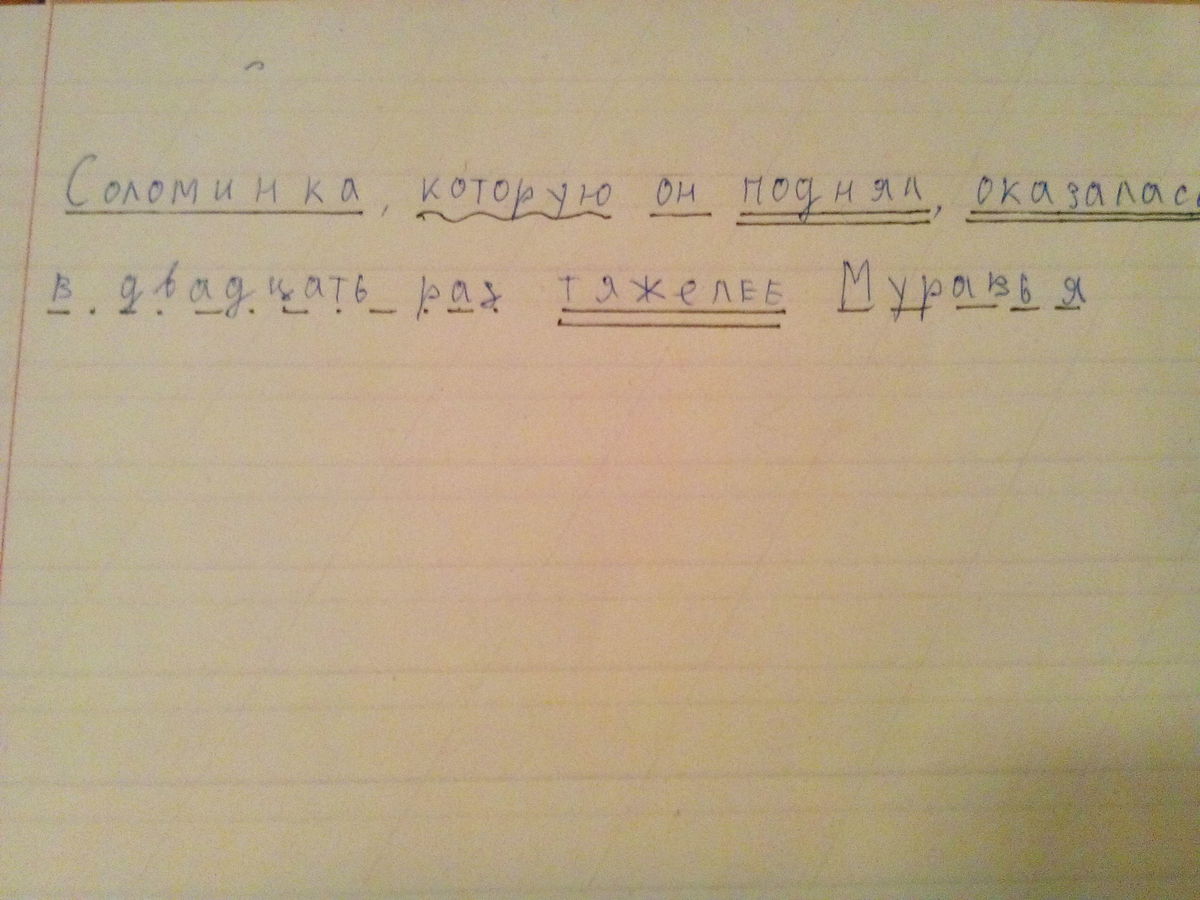 Соломинка, которую он поднял, оказалась
в двадцать раз тяжелее Муравья